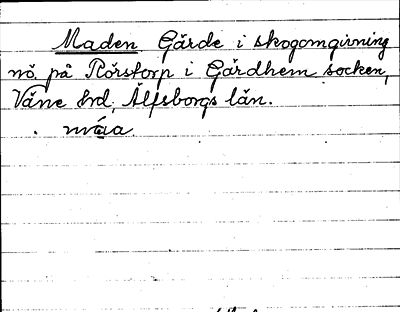 Maden Gärde i skogomgivning
nö. på Rörstorp i Gärdhem socken,
Väne hrd, Älfsborgs län.